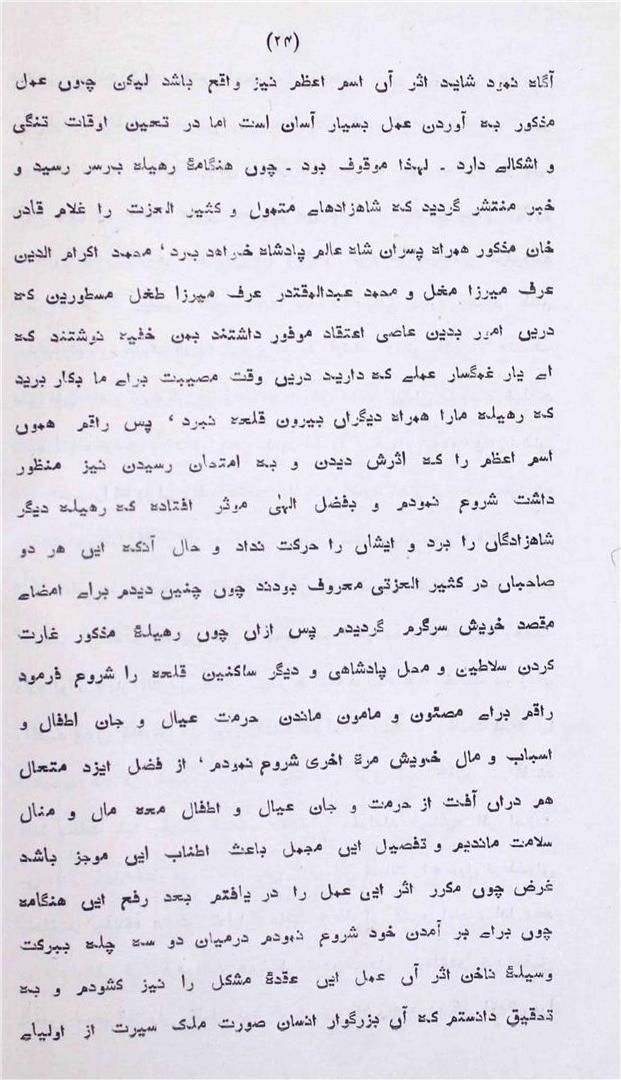 (۲۴)
آگاه نمود شاید اثر آں اسم اعظم نیز واقع باشد لیکن چوں عمل
مذکور بہ آوردن عمل بسیار آسان است اما در تحین اوقات تنگی
و اشکالے دارد ۔ لہذا موقوف بود ۔ چوں هنگامۂ رهیلہ بدرسر رسید و
خبر منتشر گردید کہ شاهزادهاے متمول و کثیر العزت را غلام قادر
خان مذکور همراہ پسران شاہ عالم پادشاہ خواهد برد، محمد اکرام الدین
عرف میرزا مغل و محمد عبدالمقتدر عرف میرزا طغل مسطورین کہ
دریں امور بدین عاصی اعتقاد موفور داشتند بمن خفیہ نوشتند کہ
اے یار غمگسار عملے کہ دارید دریں وقت مصیبت براے ما بکار برید
کہ رهیلہ مارا همراہ دیگراں بیرون قلعہ نبرد، پس راقم هموں
اسم اعظم را کہ اثرش دیدن و بہ امتحان رسیدن نیز منظور
داشت شروع نمودم و بفضل الہٰی موثر افتادہ کہ رهیلہ دیگر
شاهزادگاں را برد و ایشاں را حرکت نداد و حال آنکہ ایں هر دو
صاحباں در کثیر العزتی معروف بودند چوں چنیں دیدم براے امضاے
مقصد خویش سرگرم گردیدم پس ازاں چوں رهیلۂ مذکور غارت
کردن سلاطین و محل پادشاهی و دیگر ساکنین قلعہ را شروع فرمود
راقم براے مصئون و مامون ماندن حرمت عیال و جان اطفال و
اسباب و مال خویش مرۃ اخری شروع نمودم، از فضل ایزد متعال
هم دراں آفت از حرمت و جان عیال و اطفال معہ مال و منال
سلامت ماندیم و تفصیل ایں مجمل باعث اطناب ایں موجز باشد
غرض چوں مکرر اثر ایں عمل را در یافتم بعد رفع ایں هنگامہ
چوں براے بر آمدن خود شروع نمودم درمیان دو سہ چلہ ببرکت
وسیلۂ ناخن اثر آں عمل ایں عقدۂ مشکل را نیز کشودم و بہ
تحقیق دانستم کہ آں بزرگوار انسان صورت ملک سیرت از اولیاے